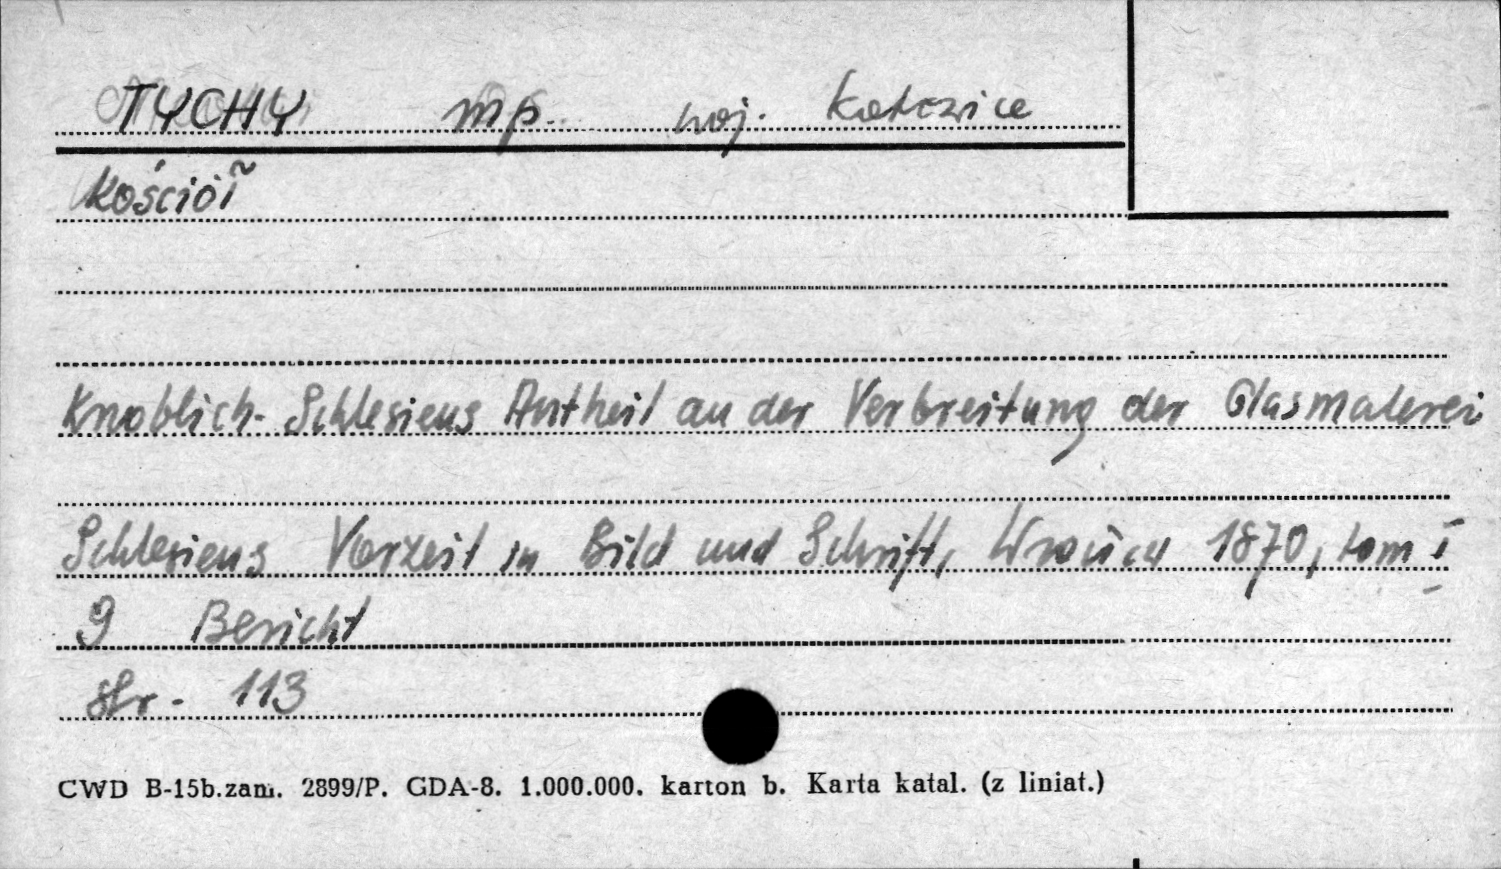 TYCHY mp. woj. Katowice
Kościół
Knoblich - Schlesiens Antheil an der Verbreitung der Glasmalerei
Schlesiens Vorzeit in Bild und Schrift, Wrocław 1870, tom I
9 Bericht
str. 113
CWD B-15b.zam. 2899/P. GDA-8. 1.000.000. karton b. Karta katal. (z liniat.)